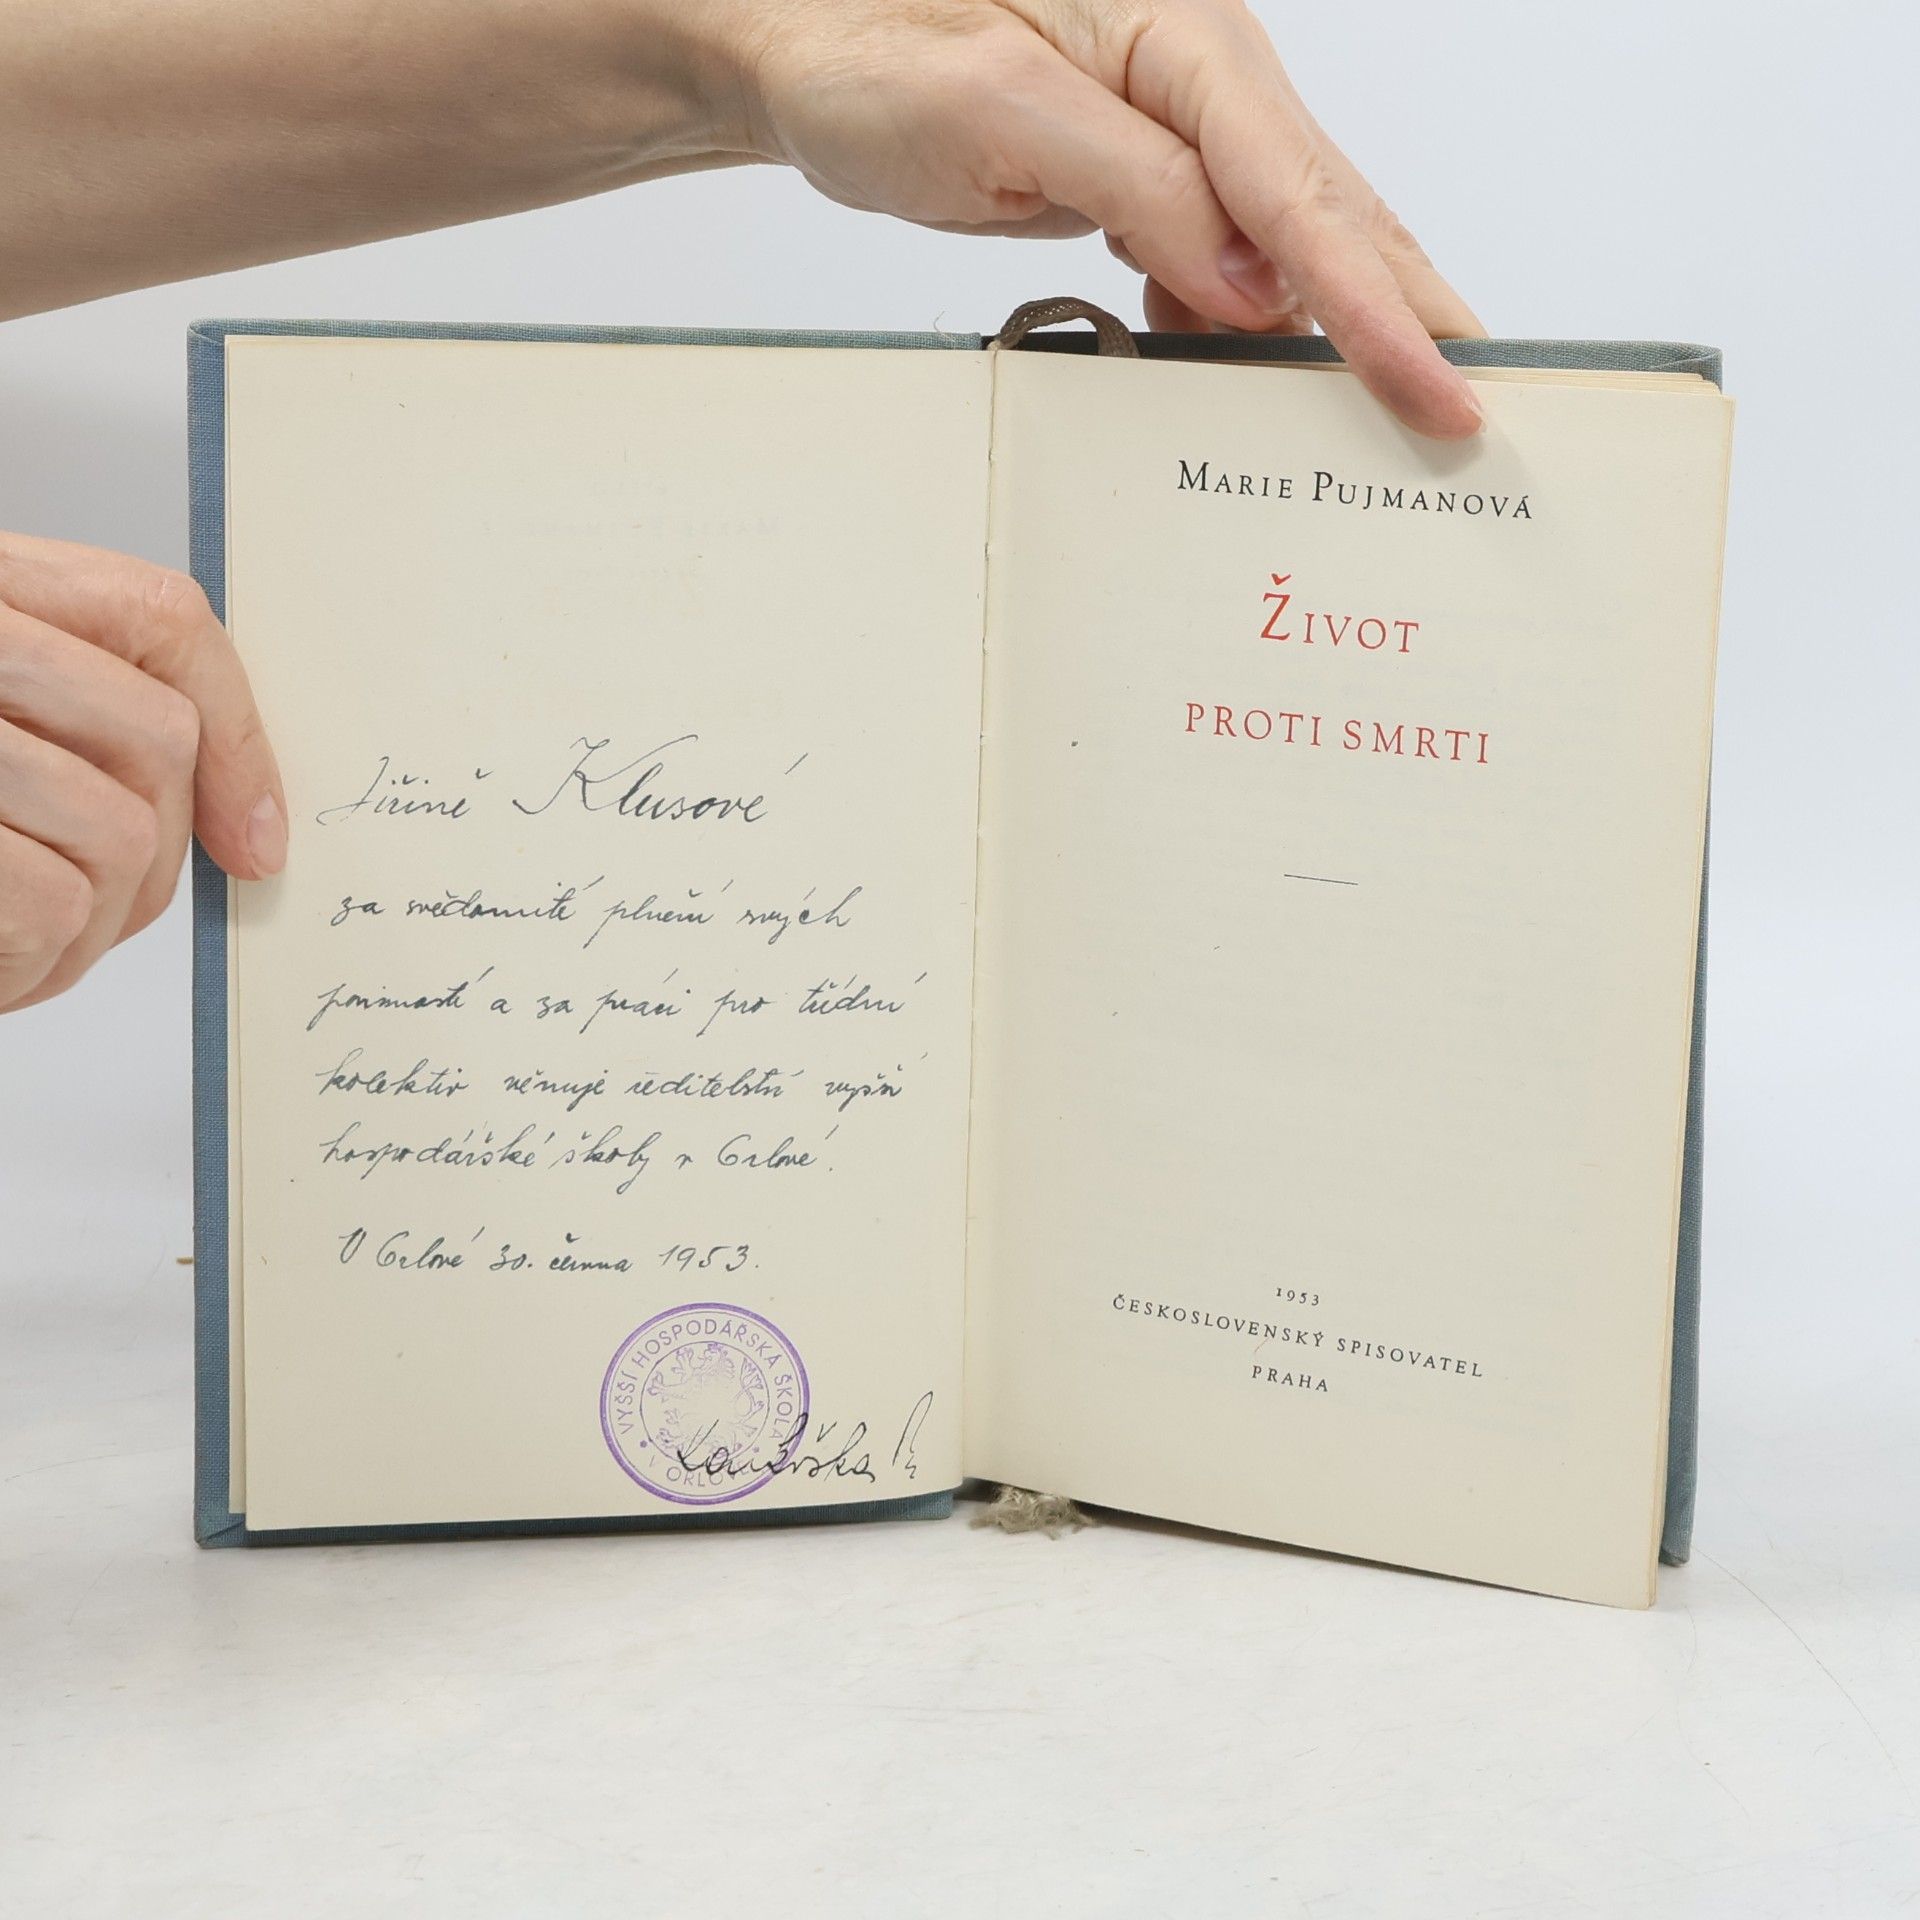 Jiřině Klusové
za svědomité plnění svých
povinností a za práci pro třídní
kolektiv věnuje ředitelství vyšší
hospodářské školy v Orlové.
V Orlové 30. června 1953.
VYŠŠÍ HOSPODÁŘSKÁ ŠKOLA
V ORLOVÉ
MARIE PUJMANOVÁ
ŽIVOT
PROTI SMRTI
1953
ČESKOSLOVENSKÝ SPISOVATEL
PRAHA